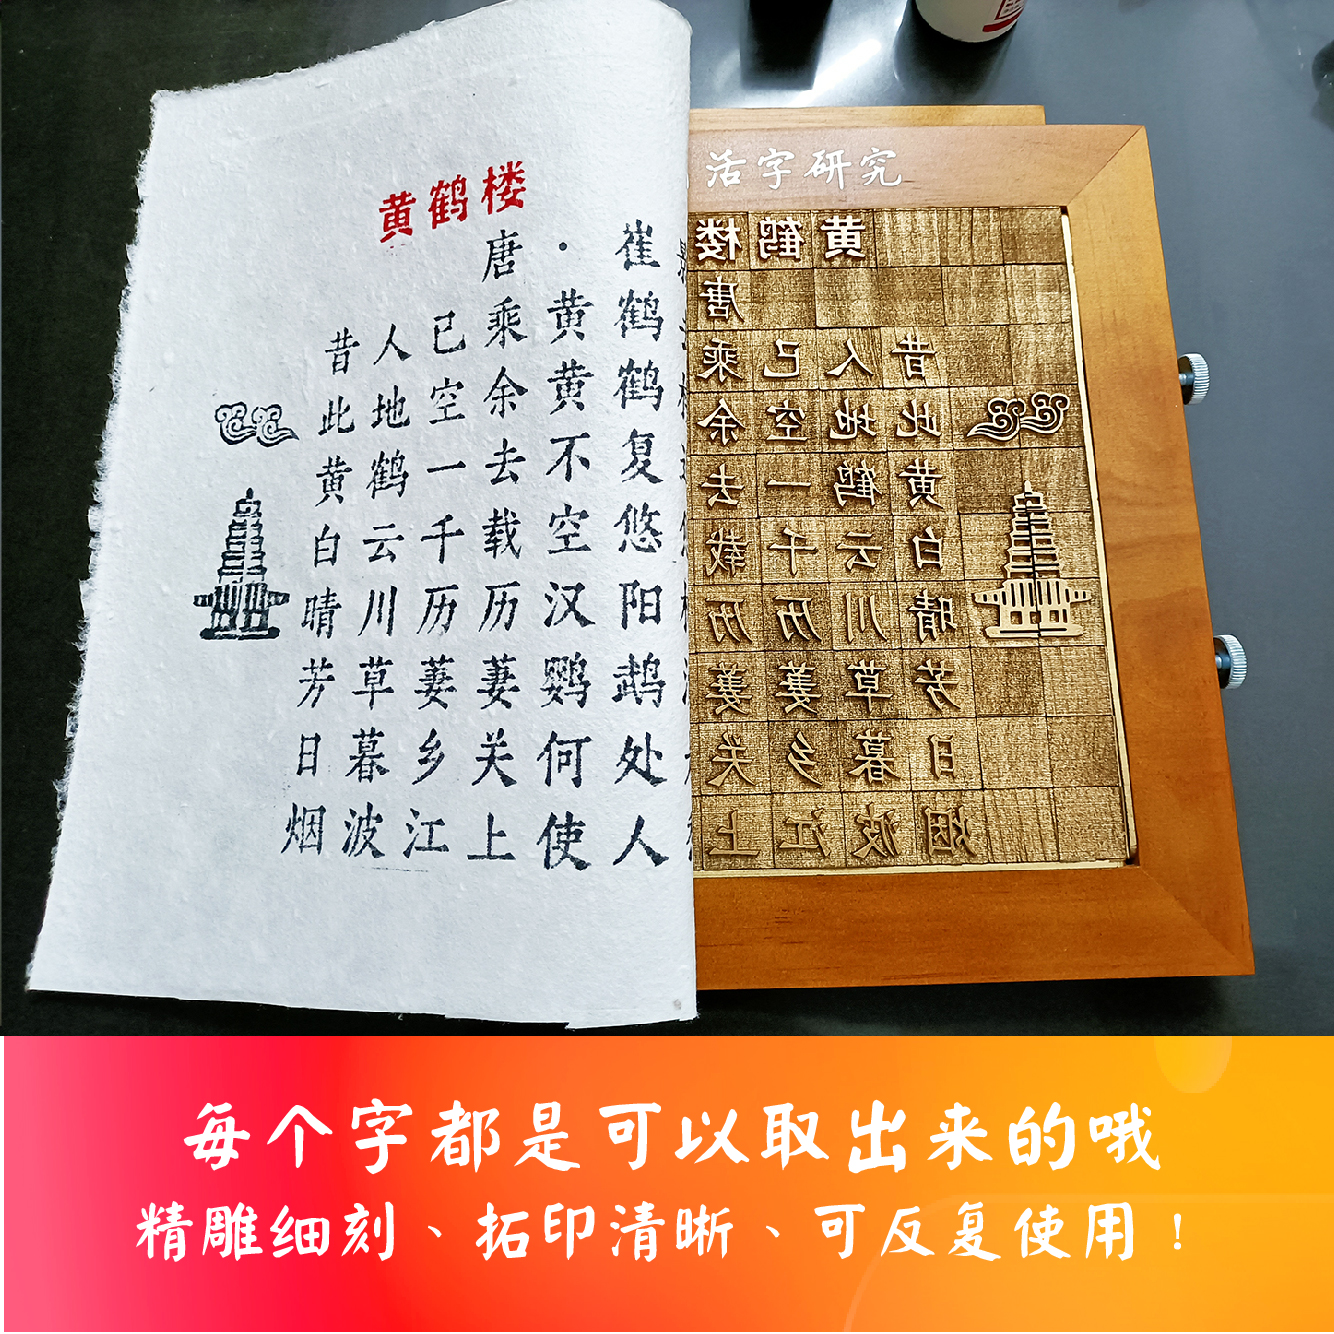 黄鹤楼
唐·崔
昔人已乘黄鹤
此地空余黄鹤
黄鹤一去不复
白云千载空悠
晴川历历汉阳
芳草萋萋鹦鹉
日暮乡关何处
烟波江上使人
活字研究
黄鹤楼
唐
昔人已乘
此地空余
黄鹤一去
白云千载
晴川历历
芳草萋萋
日暮乡关
烟波江上
每个字都是可以取出来的哦
精雕细刻、拓印清晰、可反复使用！